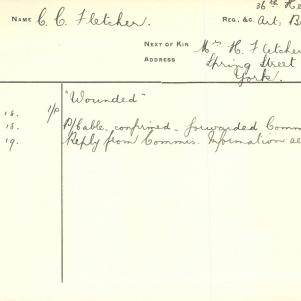 36th He
NAME C. C. Fletcher. REG. &C. Art. B
NEXT OF KIN Mrs H. Fletcher
ADDRESS Spring Street
York.
"Wounded"
18. 1/P
18. P/Cable confirmed - forwarded Comm
19. Reply from Commis. Information se